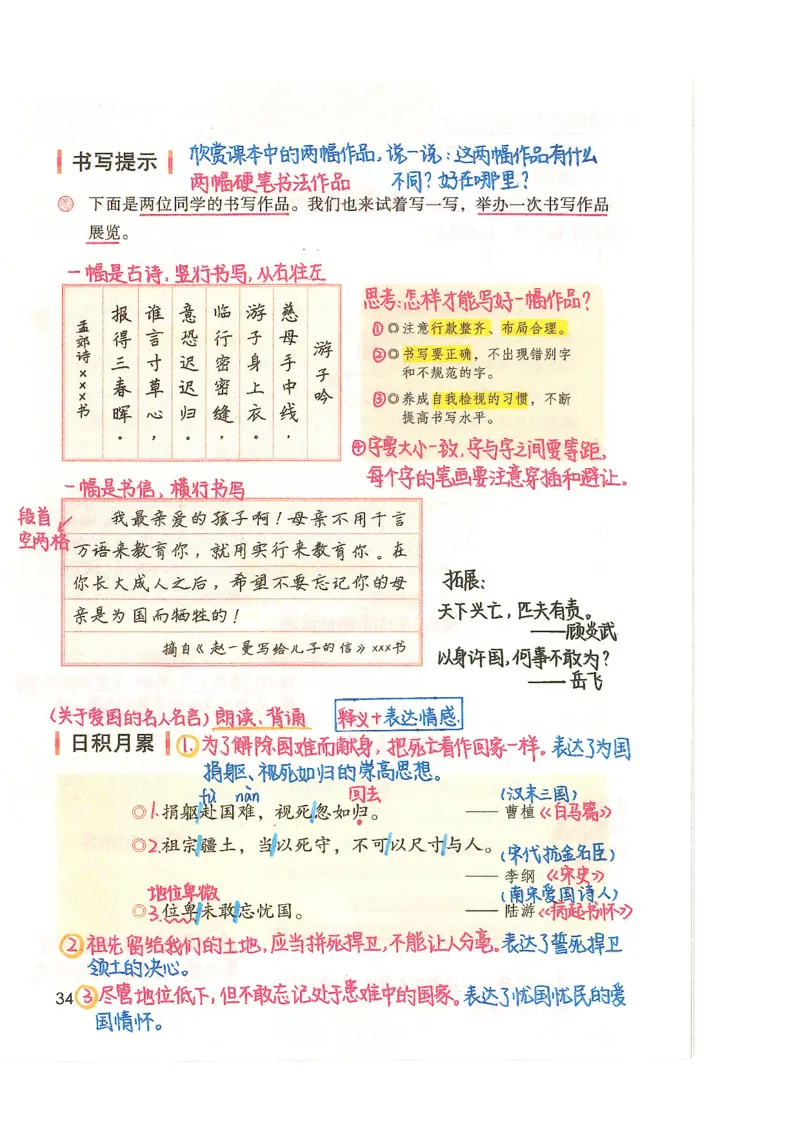 书写提示
欣赏课本中的两幅作品,说一说:这两幅作品有什么
两幅硬笔书法作品 不同?好在哪里?
下面是两位同学的书写作品。我们也来试着写一写,举办一次书写作品
展览。
一幅是古诗,竖行书写,从右往左
游子吟
慈母手中线,
游子身上衣。
临行密密缝,
意恐迟迟归。
谁言寸草心,
报得三春晖。
孟郊诗×××书
思考:怎样才能写好一幅作品?
①◎注意行款整齐、布局合理。
②◎书写要正确,不出现错别字
和不规范的字。
③◎养成自我检视的习惯,不断
提高书写水平。
④字要大小一致,字与字之间要等距,
每个字的笔画要注意穿插和避让。
一幅是书信,横行书写
段首
空两格
我最亲爱的孩子啊!母亲不用千言
万语来教育你,就用实行来教育你。在
你长大成人之后,希望不要忘记你的母
亲是为国而牺牲的!
摘自《赵一曼写给儿子的信》×××书
拓展:
天下兴亡,匹夫有责。
——顾炎武
以身许国,何事不敢为?
——岳飞
(关于爱国的名人名言)朗读、背诵 释义+表达情感
日积月累
1.为了解除国难而献身,把死亡看作回家一样。表达了为国
捐躯、视死如归的崇高思想。
fù nàn 回去 (汉末三国)
◎1.捐躯赴国难,视死忽如归。 ——曹植《白马篇》
◎2.祖宗疆土,当以死守,不可以尺寸与人。
(宋代抗金名臣)
——李纲《宋史》
地位卑微 (南宋爱国诗人)
◎3.位卑未敢忘忧国。 ——陆游《病起书怀》
②祖先留给我们的土地,应当拼死捍卫,不能让人分毫。表达了誓死捍卫
领土的决心。
34 ③尽管地位低下,但不敢忘记处于患难中的国家。表达了忧国忧民的爱
国情怀。